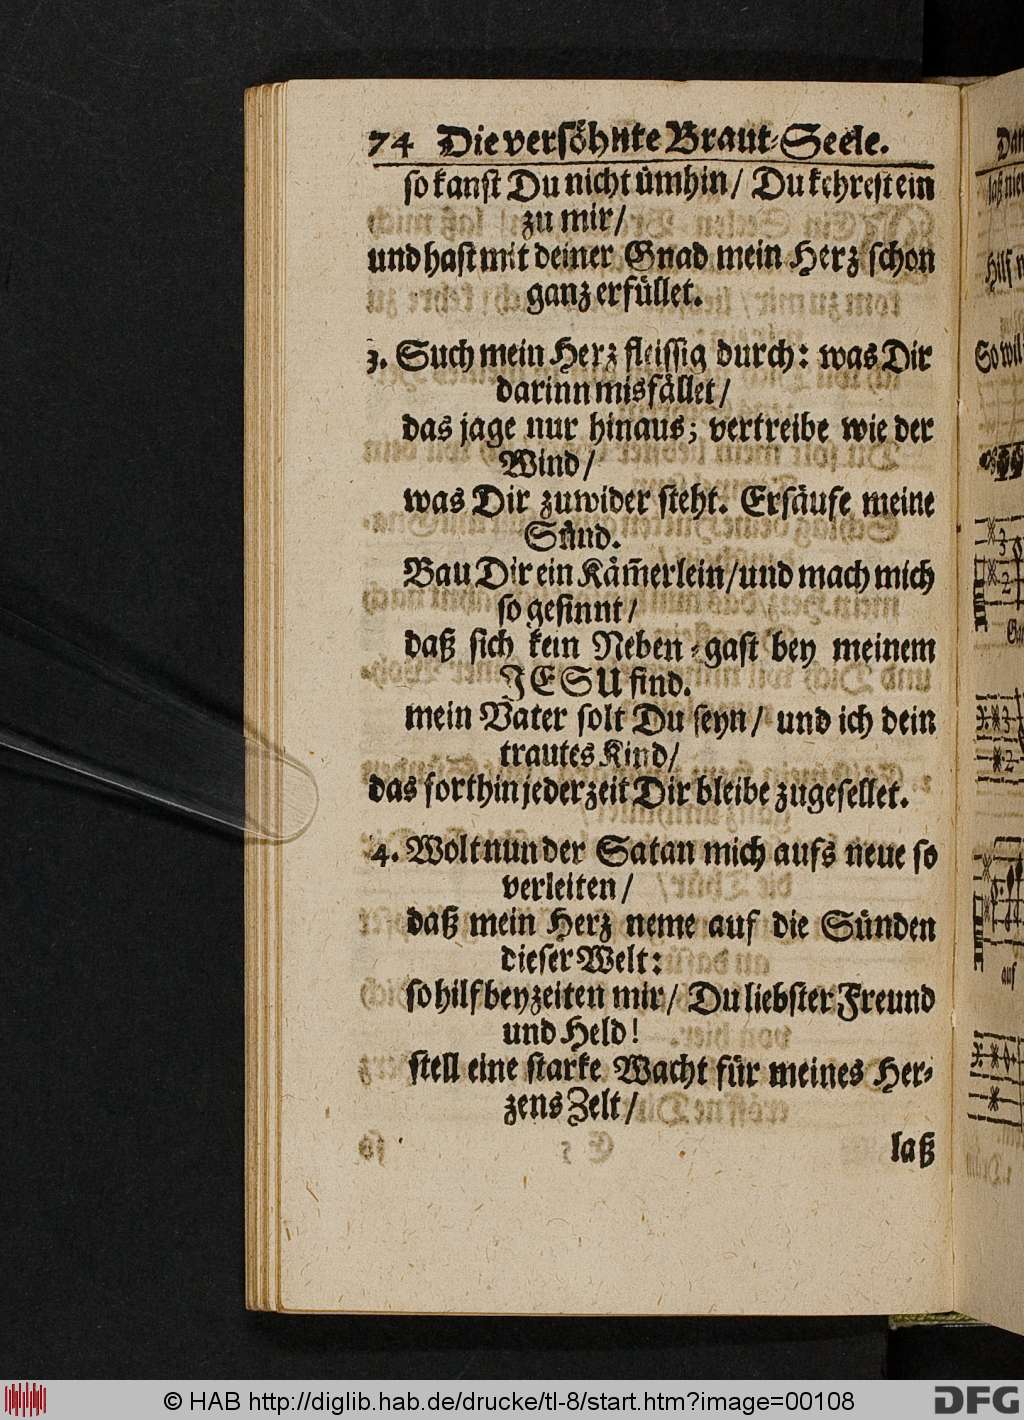 74 Die versöhnte Braut-Seele.
so kanst Du nicht ümhin / Du kehrest ein
zu mir /
und hast mit deiner Gnad mein Herz schon
ganz erfüllet.
3. Such mein Herz fleissig durch: was Dir
darinn misfället /
das jage nur hinaus; vertreibe wie der
Wind /
was Dir zuwider steht. Ersäufe meine
Sünd.
Bau Dir ein Käm̅erlein / und mach mich
so gesinnt /
daß sich kein Neben-gast bey meinem
JESU find.
mein Vater solt Du seyn / und ich dein
trautes Kind /
das forthin jederzeit Dir bleibe zugesellet.
4. Wolt nun der Satan mich aufs neue so
verleiten /
daß mein Herz neme auf die Sünden
dieser Welt:
so hilf beyzeiten mir / Du liebster Freund
und Held!
stell eine starke Wacht für meines Her-
zens Zelt /
laß
So wil
auf
© HAB http://diglib.hab.de/drucke/tl-8/start.htm?image=00108
DFG